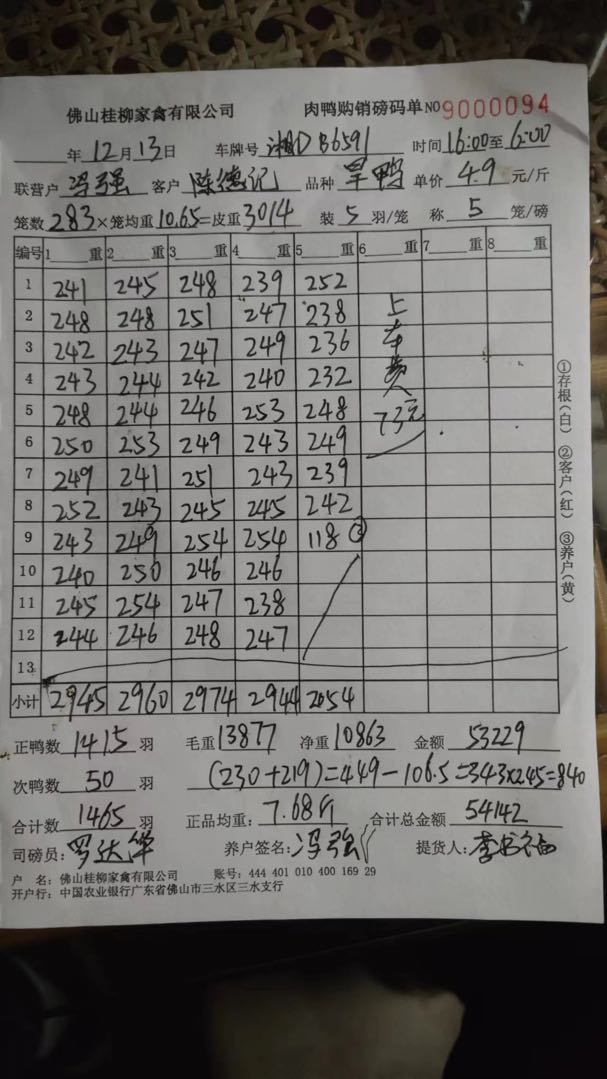 佛山桂柳家禽有限公司 肉鸭购销磅码单 NO 9000094
年 12 月 13 日 车牌号 湘D B6591 时间 16:00 至 6:00
联营户 冯强 客户 陈德记 品种 旱鸭 单价 4.9 元/斤
笼数 283 × 笼均重 10.65 = 皮重 3014 装 5 羽/笼 称 5 笼/磅
编号 1 重 2 重 3 重 4 重 5 重 6 重 7 重 8 重
1 241 245 248 239 252
2 248 248 251 247 238 上
3 242 243 247 249 236 车
4 243 244 242 240 232 费
5 248 244 246 253 248 73元
6 250 253 249 243 249
7 249 241 251 243 239
8 252 243 245 245 242
9 243 249 254 254 118
10 240 250 246 246
11 245 254 247 238
12 244 246 248 247
13
小计 2945 2960 2974 2944 2054
①存根(白) ②客户(红) ③养户(黄)
正鸭数 1415 羽 毛重 13877 净重 10863 金额 53229
次鸭数 50 羽 (230+219)=449-106.5=343×2.45=840
合计数 1465 羽 正品均重: 7.68斤 合计总金额 54142
司磅员: 罗达华 养户签名: 冯强 提货人: 李书福
户 名: 佛山桂柳家禽有限公司 账号: 444 401 010 400 169 29
开户行: 中国农业银行广东省佛山市三水区三水支行